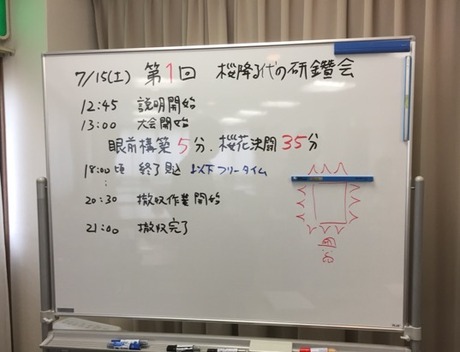 7/15(土) 第1回 桜降る代の研鑽会
12:45 説明開始
13:00 大会開始
眼前構築5分、桜花決闘35分
18:00頃 終了予定 以下フリータイム
20:30 撤収作業開始
21:00 撤収完了